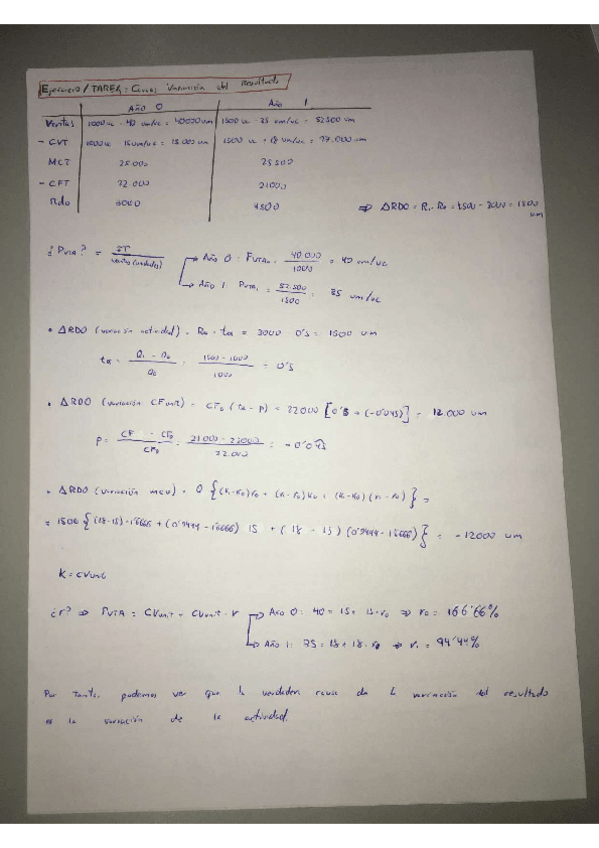 Ejercicio / TAREA: Causas Variación del Resultado
Año 0 Año 1
Ventas 1000 uc · 40 um/uc = 40000 um 1500 uc · 35 um/uc = 52500 um
- CVT 1000 uc · 15 um/uc = 15.000 um 1500 uc · 18 um/uc = 27.000 um
MCT 25.000 25.500
- CFT 22.000 21000
Rdo 3000 4500 ⇒ ΔRDO = R₁ - R₀ = 4500 - 3000 = 1500 um
¿PVTA? = IT / Ventas (unidades)
Año 0: PVTA₀ = 40.000 / 1000 = 40 um/uc
Año 1: PVTA₁ = 52.500 / 1500 = 35 um/uc
• ΔRDO (variación actividad) = R₀ · ta = 3000 · 0'5 = 1500 um
ta = Q₁ - Q₀ / Q₀ = 1500 - 1000 / 1000 = 0'5
• ΔRDO (variación CFunit) = CF₀ (ta - p) = 22000 [0'5 + (-0'045)] = 12.000 um
p = CF₁ - CF₀ / CF₀ = 21000 - 22000 / 22.000 = -0'045
• ΔRDO (variación mcu) = Q {(k₁-k₀) r₀ + (r₁-r₀) k₀ + (k₁-k₀) (r₁-r₀)} =
= 1500 {(18-15) · 1'6666 + (0'9444 - 1'6666) 15 + (18 - 15) (0'9444 - 1'6666)} = -12000 um
K = CVunit
¿r? ⇒ PVTA = CVunit + CVunit · r
Año 0: 40 = 15 + 15 · r₀ ⇒ r₀ = 166'66%
Año 1: 35 = 18 + 18 · r₁ ⇒ r₁ = 94'44%
Por tanto, podemos ver que la verdadera causa de la variación del resultado
es la variación de la actividad.